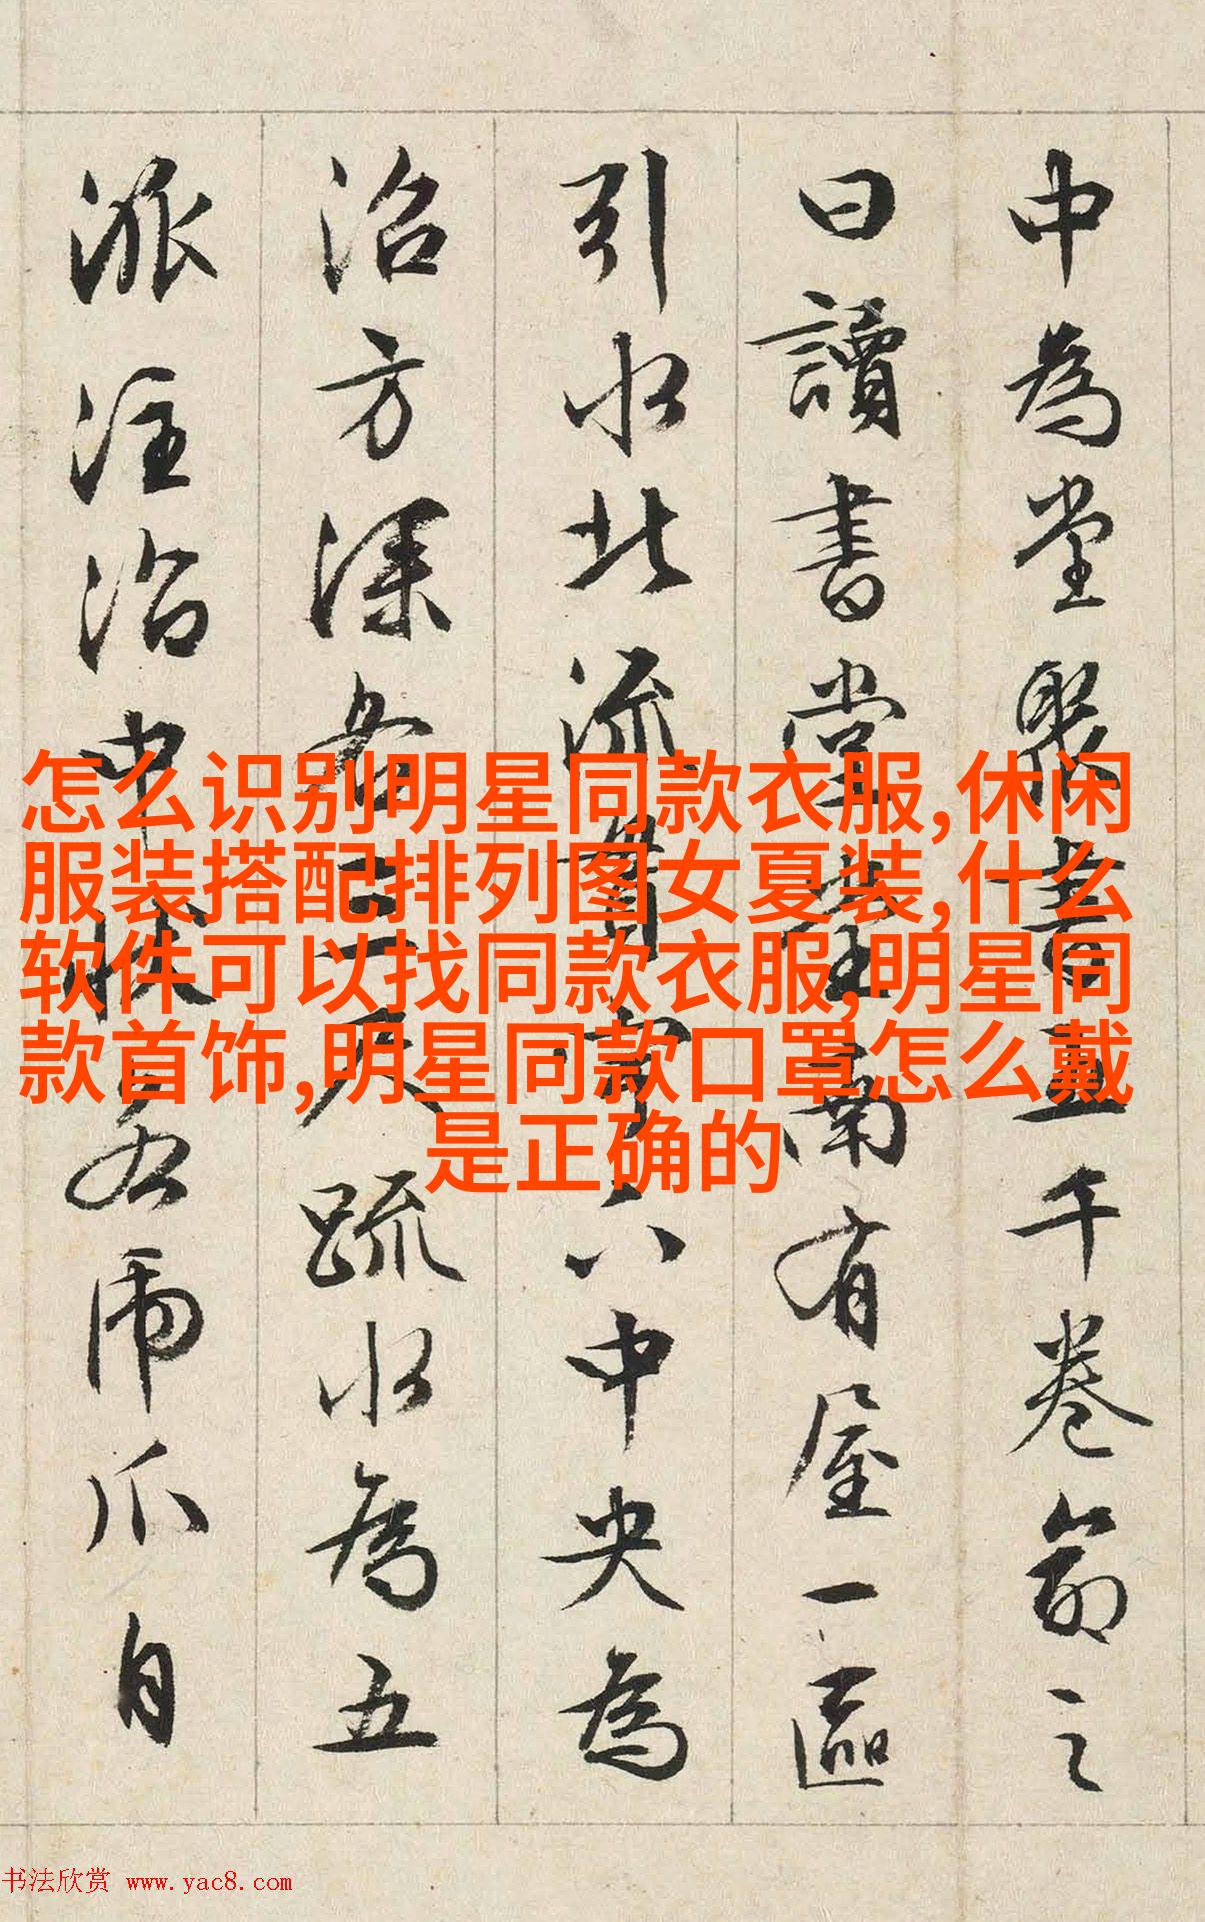 中為堂聚書五千卷命之
曰讀書堂堂南有屋一區
引水北流貫宇下中央為
沼方深各三尺疏水為五
派注沼中狀若虎爪自
怎么识别明星同款衣服,休闲
服装搭配排列图女夏装,什么
软件可以找同款衣服,明星同
款首饰,明星同款口罩怎么戴
是正确的
书法欣赏 www.yac8.com